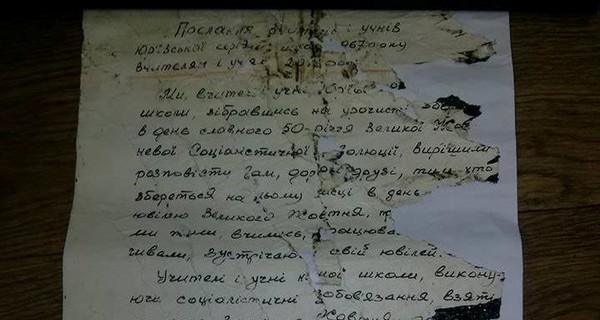 Послання вчителів і учнів
Юр'ївської середн школи 1967 року
вчителям і учням 20
Ми, вчителі і учні Юр'ївської
школи, зібравшись на урочисті збо
в день славного 50-річчя Великої Жов
невої Соціалістичної золюції, вирішили
розповісти Вам, дорогі друзі, тим, хто
збереться на цьому місці в день
ювілею Великого Жовтня,
ми жили, вчились, працюва
чивали, зустрічаю свій ювілей.
Учителі і учні нашої школи, викону-
ючи соціалістичні зобов'язання, взяті
Жовтня